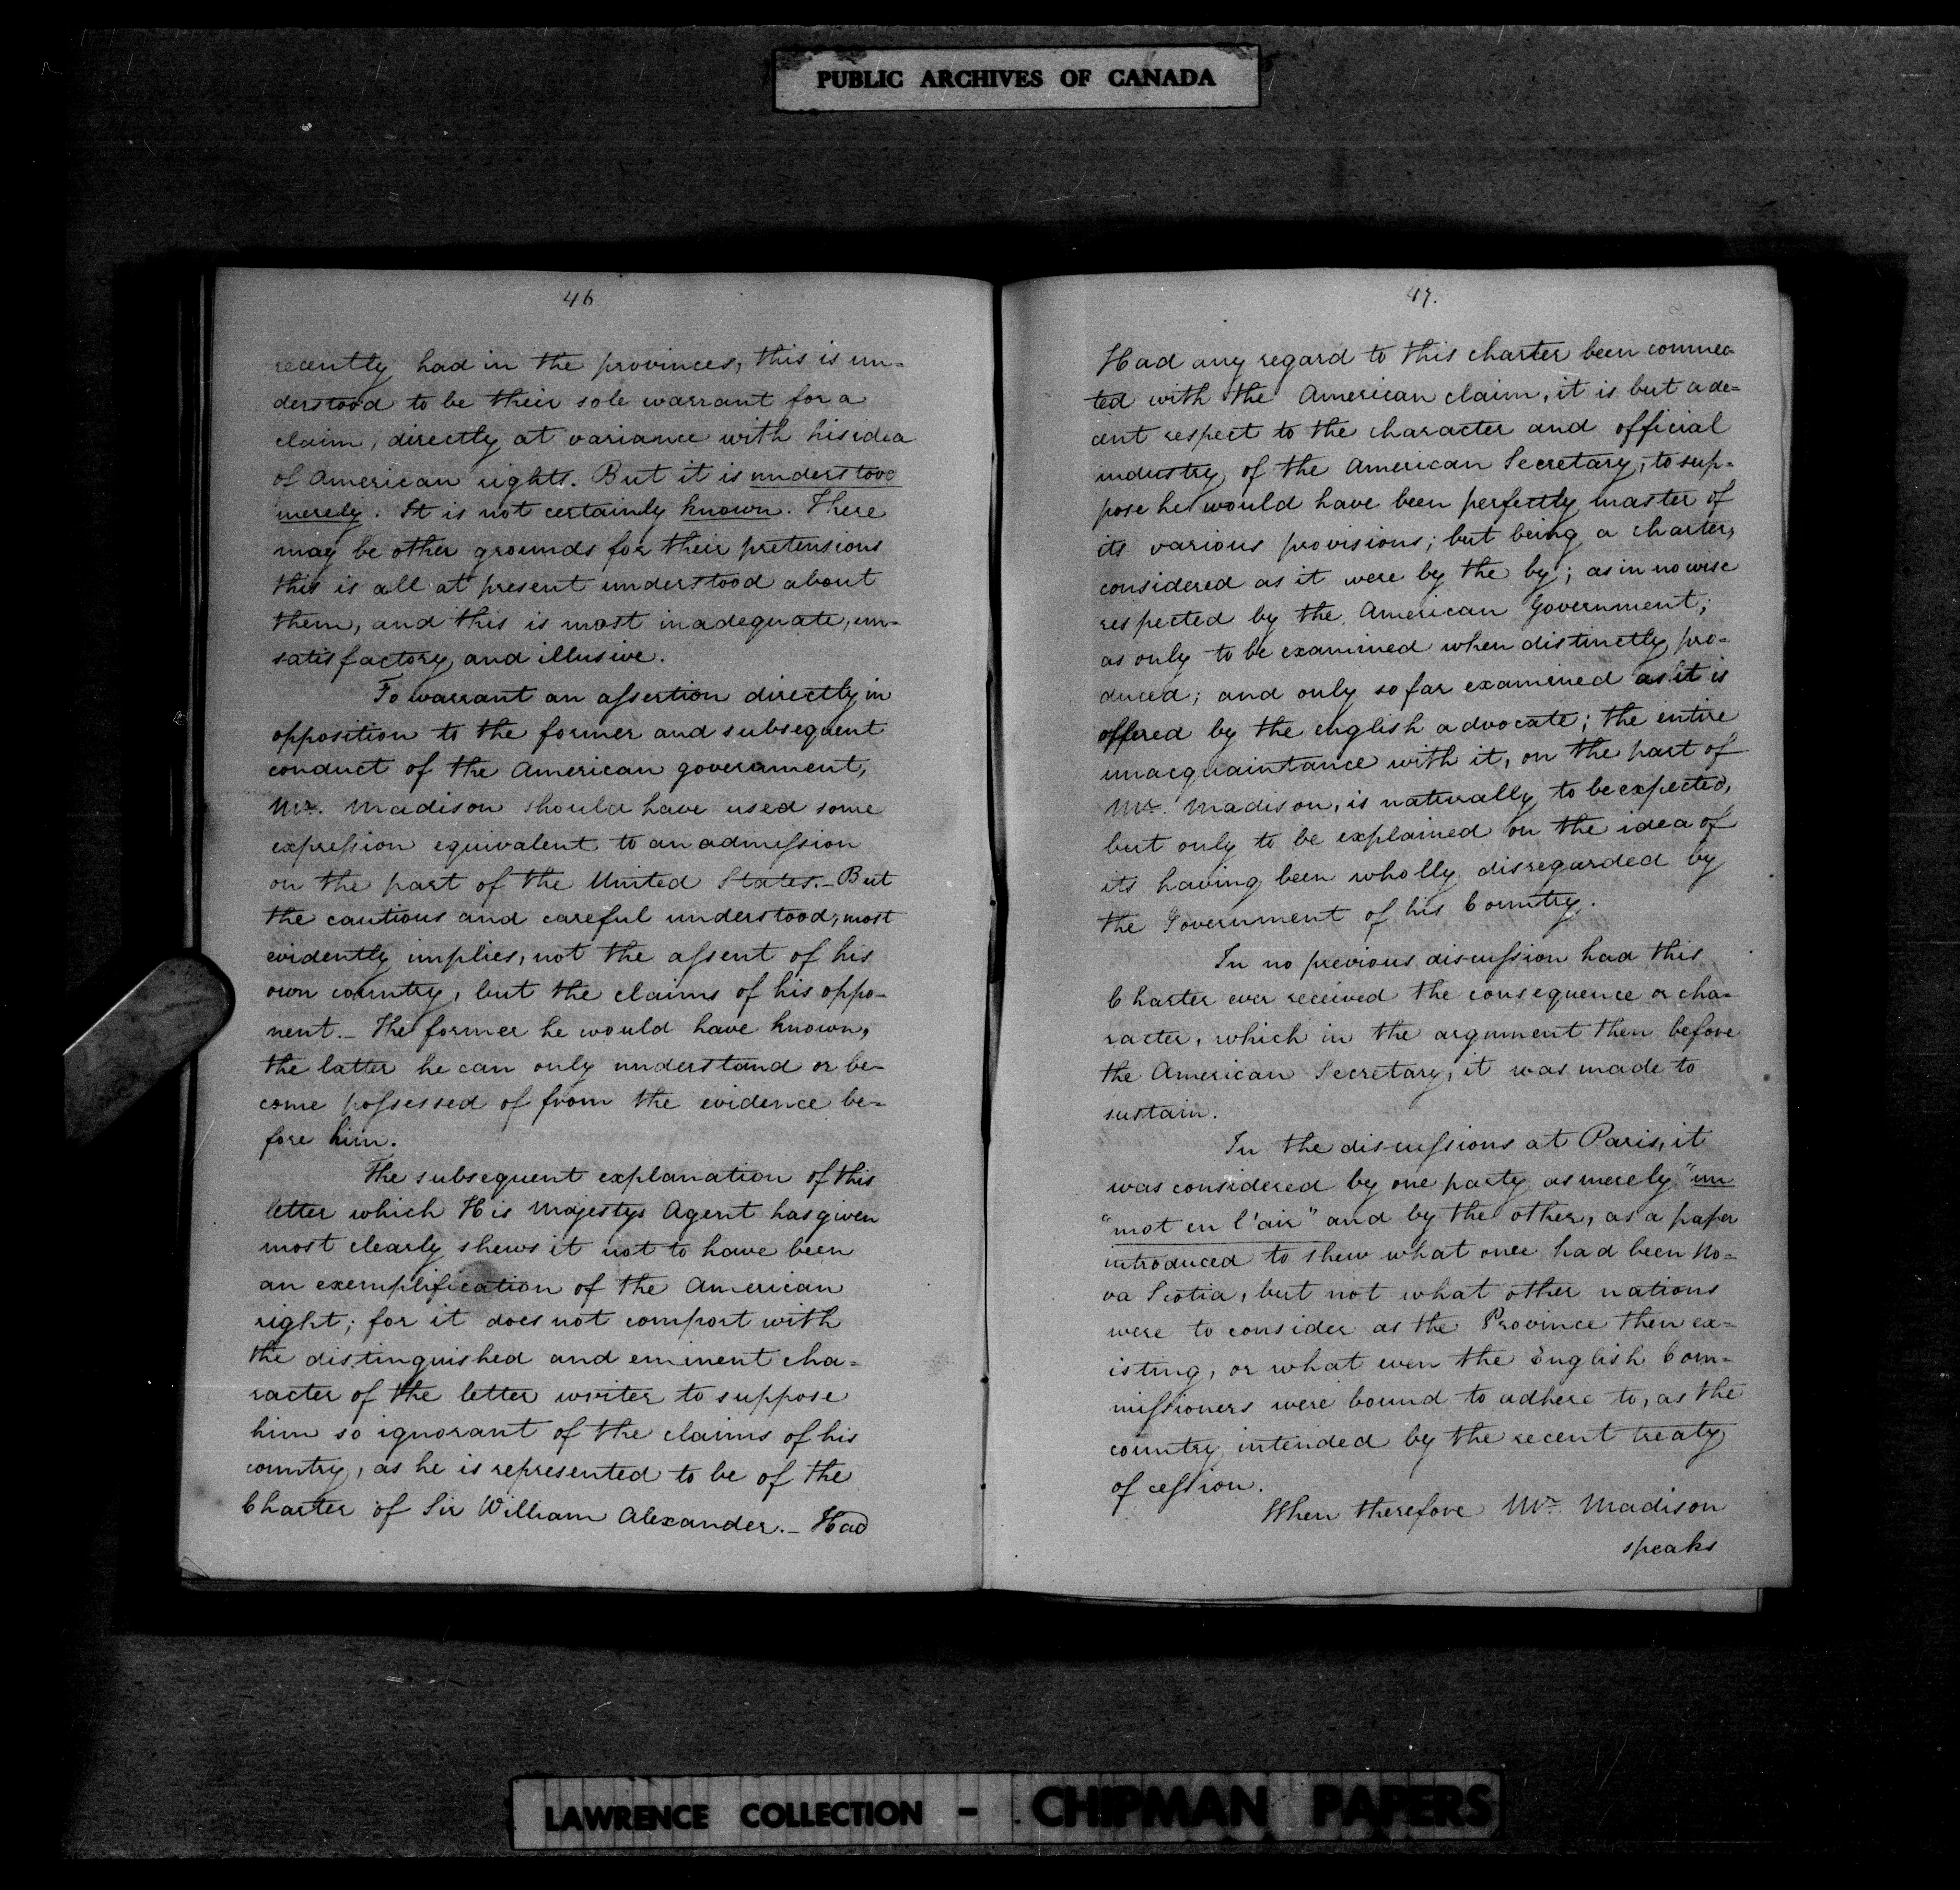 PUBLIC ARCHIVES OF CANADA
46
recently had in the provinces, this is un-
derstood to be their sole warrant for a
claim, directly at variance with his idea
of American rights. But it is understood
merely. It is not certainly known. There
may be other grounds for their pretensions
this is all at present understood about
them, and this is most inadequate, un-
satisfactory and illusive.
To warrant an assertion directly in
opposition to the former and subsequent
conduct of the American government,
Mr. Madison should have used some
expression equivalent to an admission
on the part of the United States. - But
the cautious and careful understood, most
evidently implies, not the assent of his
own country, but the claims of his oppo-
nent. - The former he would have known,
the latter he can only understand or be-
come possessed of from the evidence be-
fore him.
The subsequent explanation of this
letter which His Majestys Agent has given
most clearly shews it not to have been
an exemplification of the American
right; for it does not comport with
the distinguished and eminent cha-
racter of the letter writer to suppose
him so ignorant of the claims of his
country, as he is represented to be of the
Charter of Sir William Alexander. - Had
47.
Had any regard to this charter been connec-
ted with the American claim, it is but a de-
cent respect to the character and official
industry of the American Secretary, to sup-
pose he would have been perfectly master of
its various provisions; but being a charter,
considered as it were by the by; as in no wise
respected by the American Government;
as only to be examined when distinctly pro-
duced; and only so far examined as it is
offered by the english advocate; the entire
unacquaintance with it, on the part of
Mr. Madison, is naturally to be expected,
but only to be explained on the idea of
its having been wholly disregarded by
the Government of his Country.
In no previous discussion had this
Charter ever received the consequence or cha-
racter, which in the argument then before
the American Secretary, it was made to
sustain.
In the discussions at Paris, it
was considered by one party as merely "un
"mot en l'air" and by the other, as a paper
introduced to shew what once had been No-
va Scotia, but not what other nations
were to consider as the Province then ex-
isting, or what even the English Com-
missioners were bound to adhere to, as the
country intended by the recent treaty
of cession.
When therefore Mr. Madison
speaks
LAWRENCE COLLECTION - CHIPMAN PAPERS